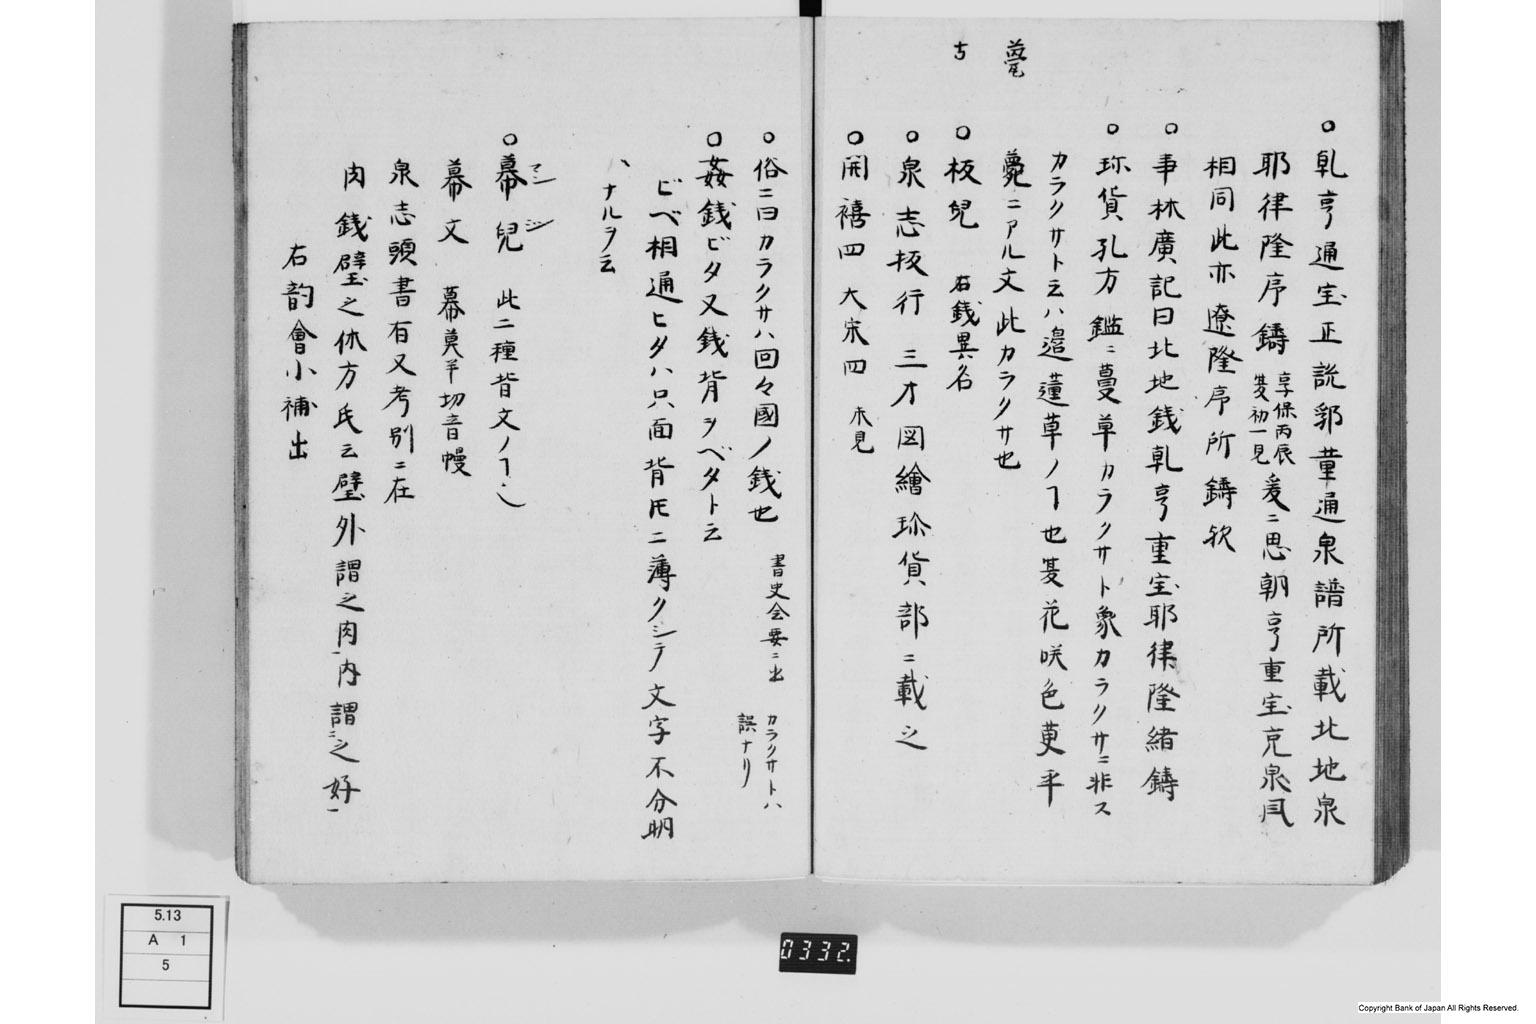 ○乹亨通宝正説郭董通泉譜所載北地泉
耶律隆序鋳享保丙辰夏初一見爰ニ思朝亨重宝克泉凨
相同此亦遼隆序所鋳欤
○事林廣記曰北地銭乹亨重宝耶律隆緒鋳
○珎貨孔方鑑ニ蔓草カラクサト象カラクサニ非ス
カラクサト云ハ邉蓮草ノヿ也夏花咲色更平
ニアル文此カラクサ也
○板兒 右銭異名
○泉志板行 三才図繪珎貨部ニ載之
○開禧四 大宋四 未見
○俗ニ曰カラクサハ回々國ノ銭也 書史会要ニ出 カラクサトハ誤ナリ
○姦銭ビタ又銭背ヲベタト云
ビベ相通ヒタハ只面背氏ニ薄クシテ文字不分明
ナルヲ云
○幕兒 此二種背文ノヿ也
幕文 幕莫半切音幔
泉志頭書有又考別ニ在
肉 銭璧之休方氏云璧外謂之肉内謂之好
右韵會小補出
5.13
A 1
5
0332.
Copyright Bank of Japan All Rights Reserved.